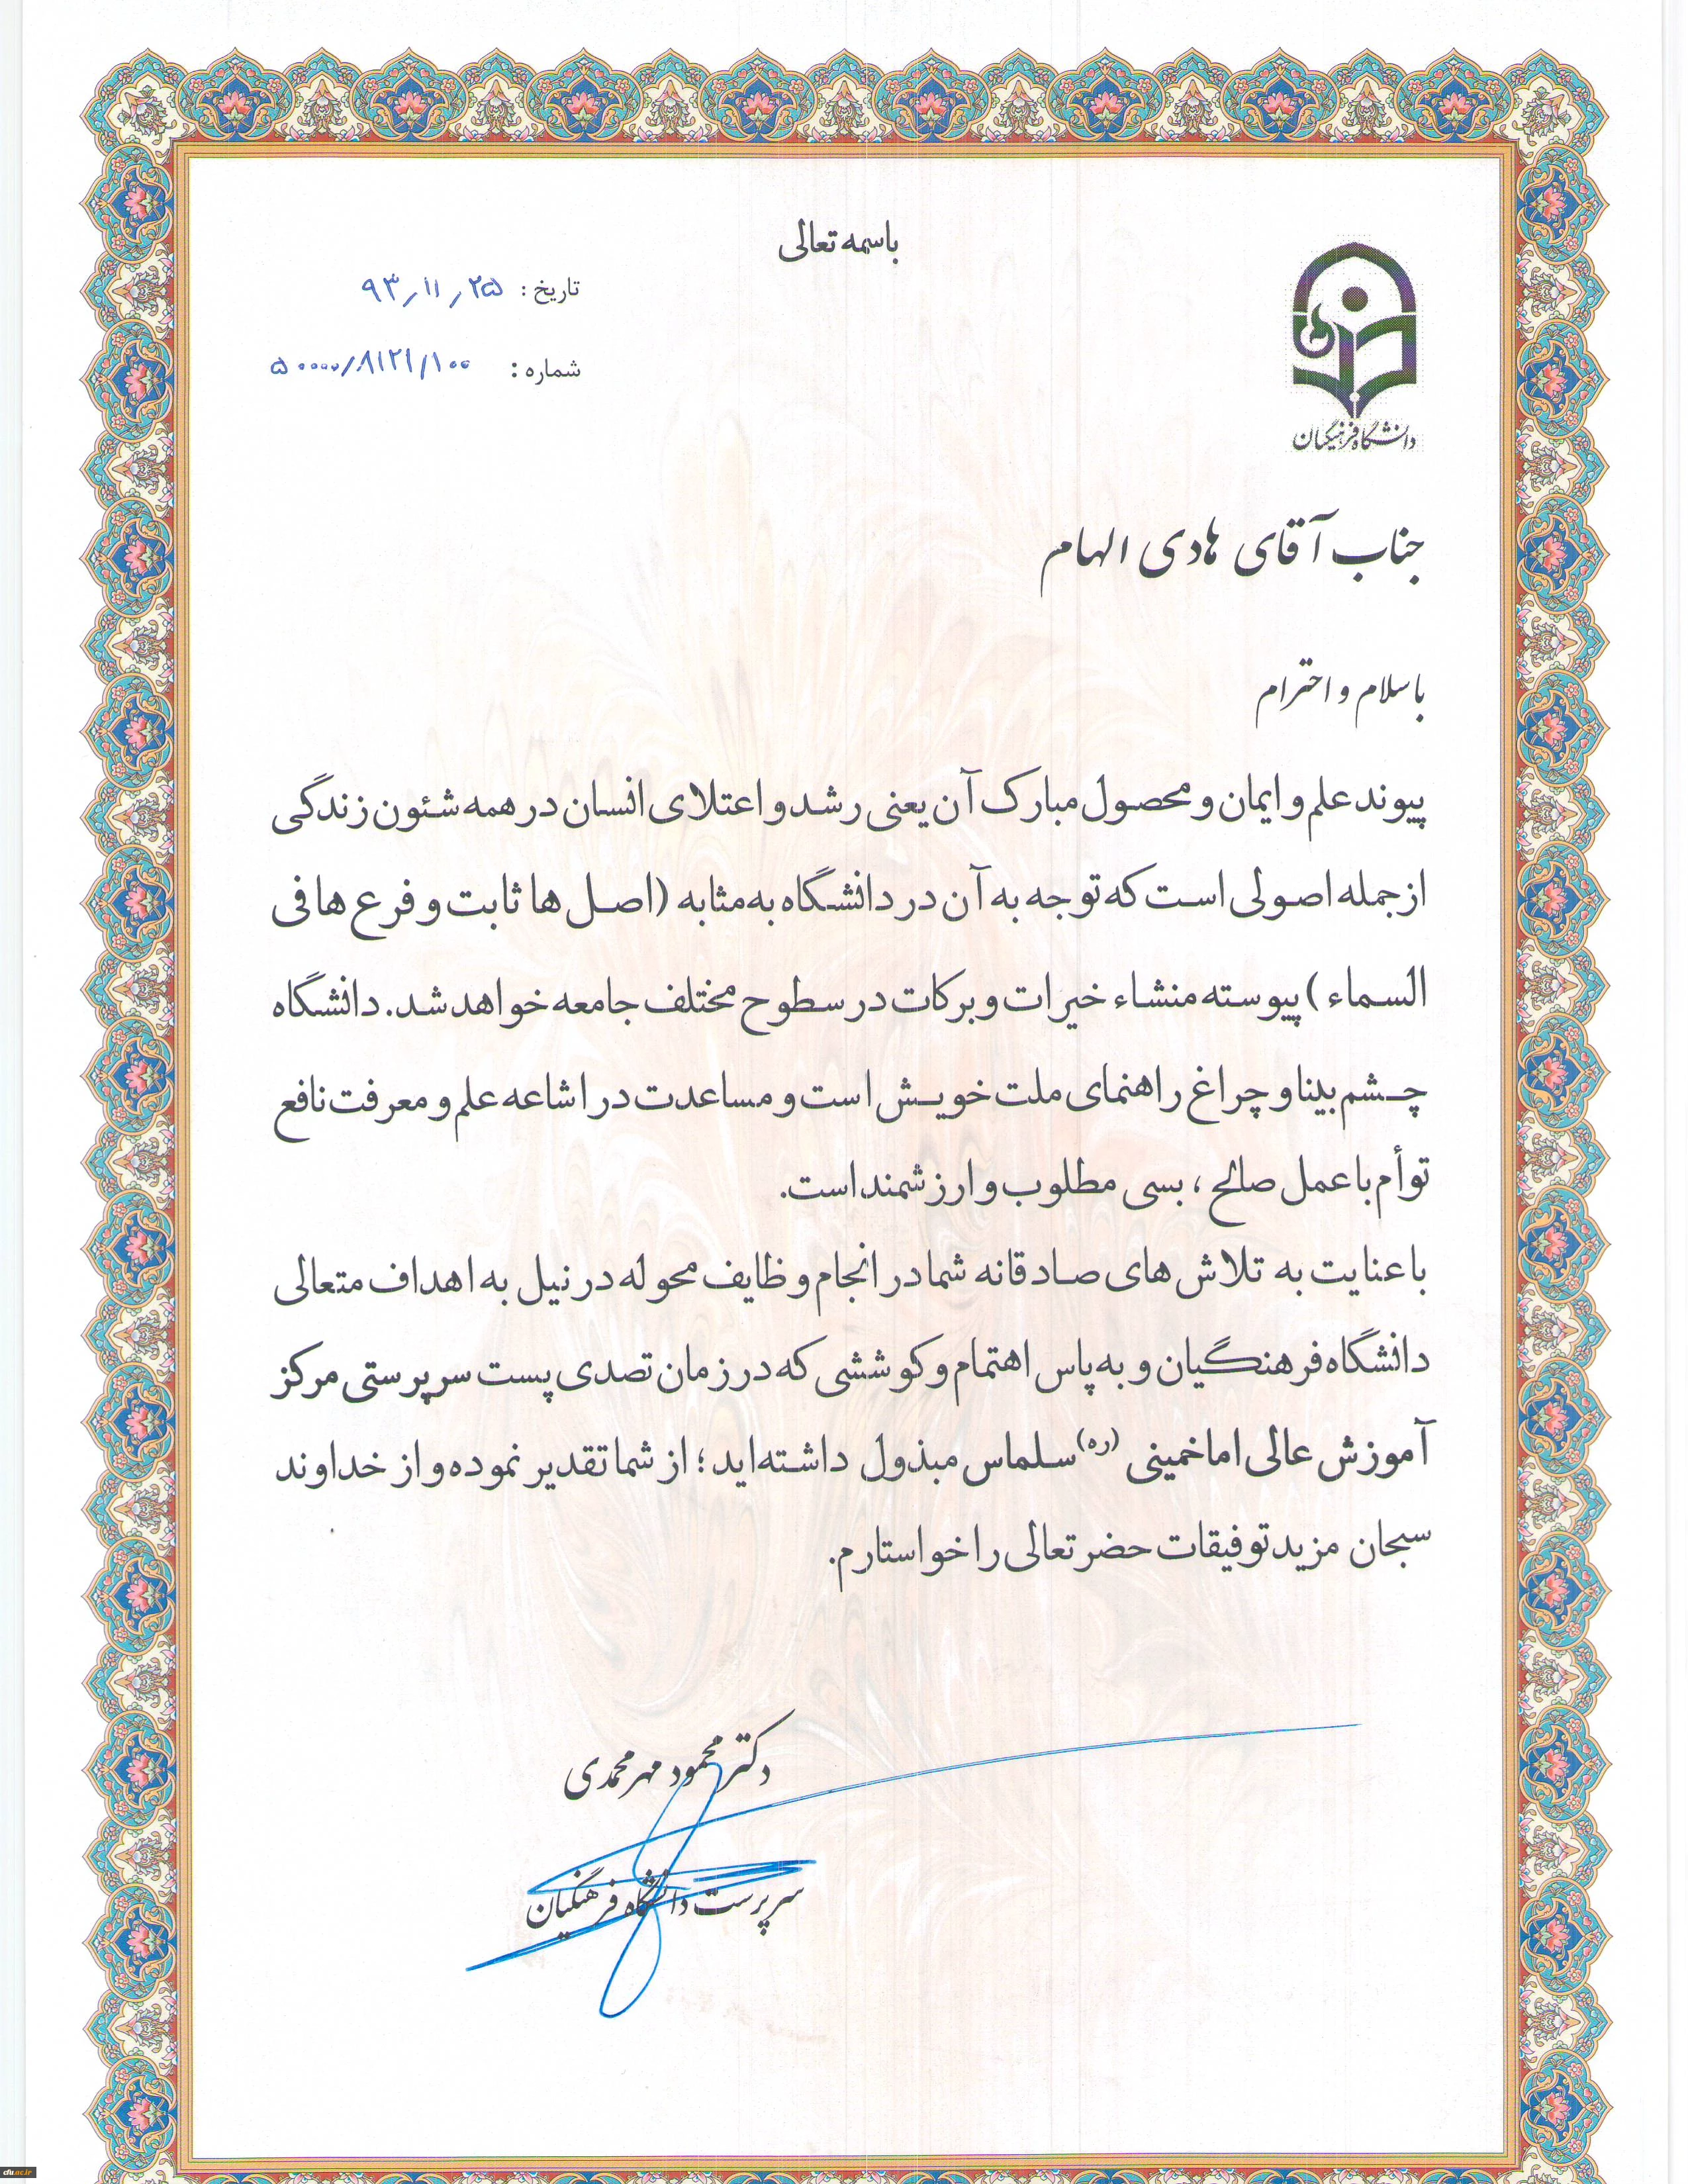 باسمه تعالی
تاریخ: ۹۳٫۱۱٫۲۵
شماره: ۵۰۰۰۰/۸۱۲۱/۱۰۰
دانشگاه فرهنگیان
جناب آقای هادی الهام
با سلام و احترام
پیوند علم و ایمان و محصول مبارک آن یعنی رشد و اعتلای انسان در همه شئون زندگی
از جمله اصولی است که توجه به آن در دانشگاه به مثابه (اصل ها ثابت و فرع ها فی
السماء) پیوسته منشاء خیرات و برکات در سطوح مختلف جامعه خواهد شد. دانشگاه
چشم بینا و چراغ راهنمای ملت خویش است و مساعدت در اشاعه علم و معرفت نافع
توأم با عمل صالح، بسی مطلوب و ارزشمند است.
با عنایت به تلاش های صادقانه شما در انجام وظایف محوله در نیل به اهداف متعالی
دانشگاه فرهنگیان و به پاس اهتمام و کوششی که در زمان تصدی پست سرپرستی مرکز
آموزش عالی امام خمینی (ره) سلماس مبذول داشته‌اید؛ از شما تقدیر نموده و از خداوند
سبحان مزید توفیقات حضرتعالی را خواستارم.
دکتر محمود مهرمحمدی
سرپرست دانشگاه فرهنگیان
cfu.ac.ir